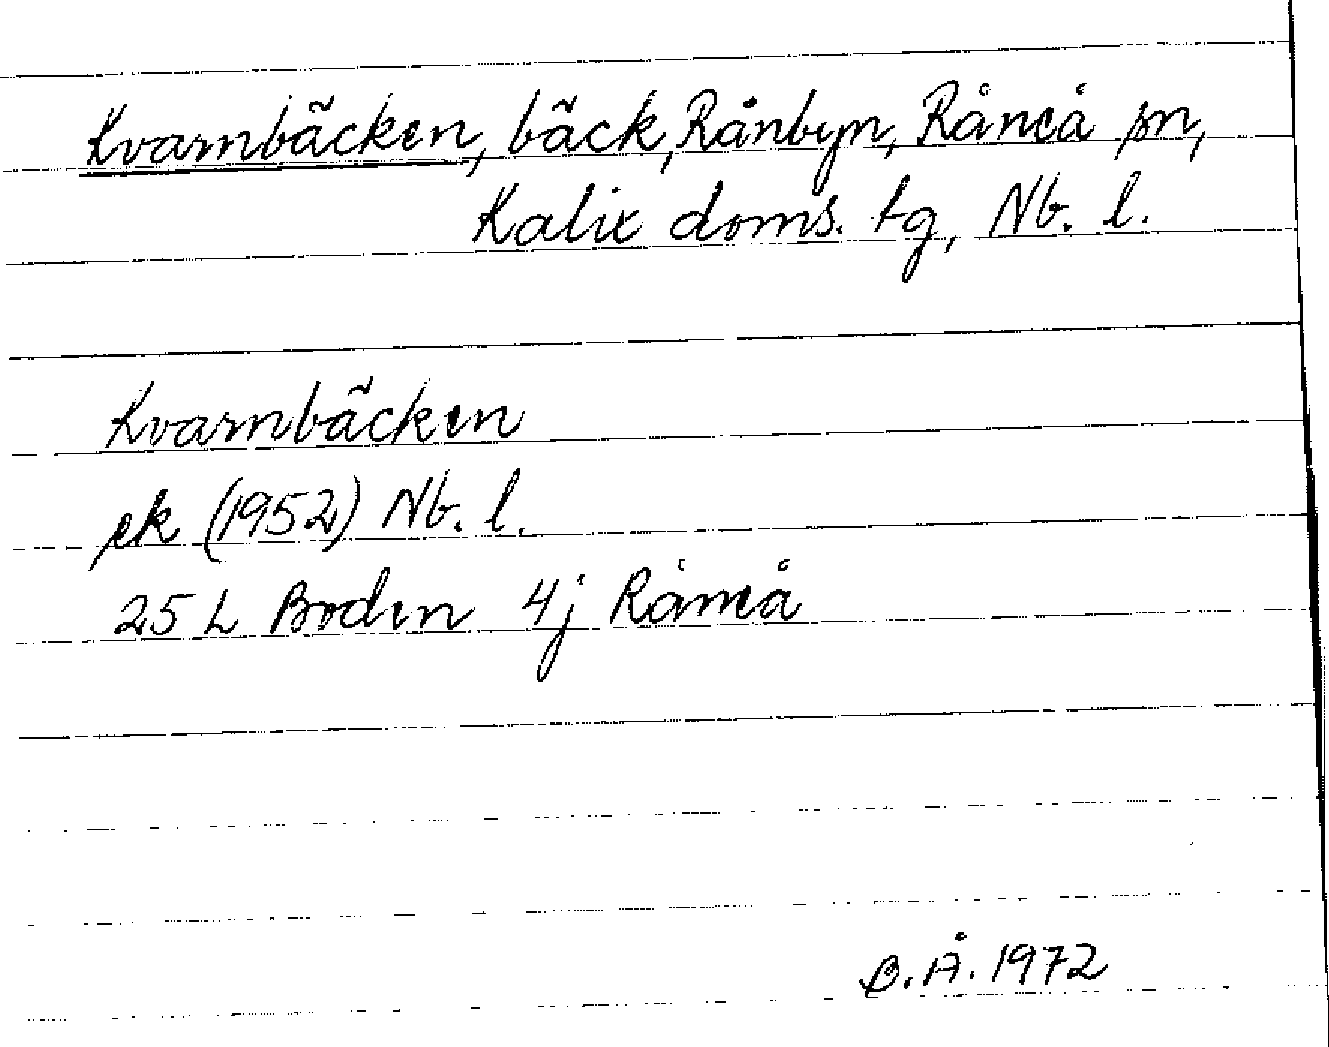 Kvarnbäcken, bäck, Rånbyn, Råneå sn,
Kalix doms. tg, Nb. l.
Kvarnbäcken
ek (1952) Nb. l.
25 L Boden 4j Råneå
B.Å. 1972